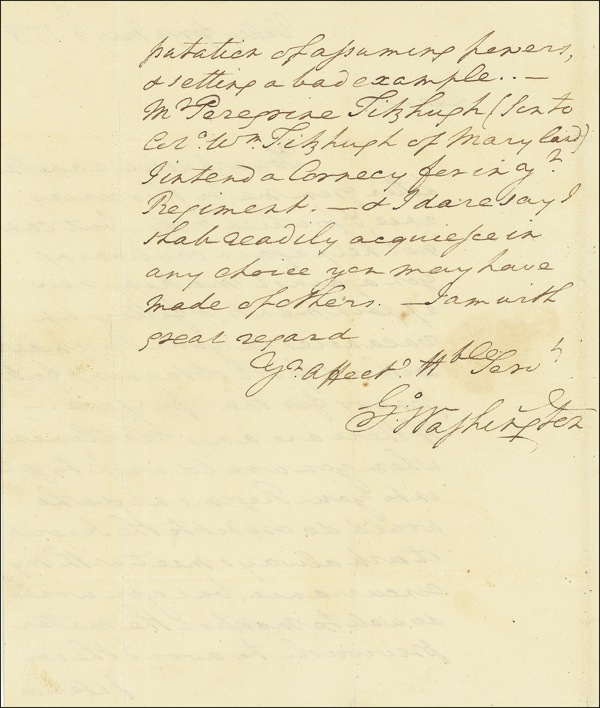 putation of assuming powers,
& setting a bad example. . —
Mr. Peregrine Fitzhugh (Son to
Colo. Wm. Fitzhugh of Maryland)
I intend a Cornecy for in yr.
Regiment. — & I dare say I
shall readily acquiesce in
any choice you may have
made of others. — I am with
great regard
Yr. Affecte. Hble Servt.
Go. Washington